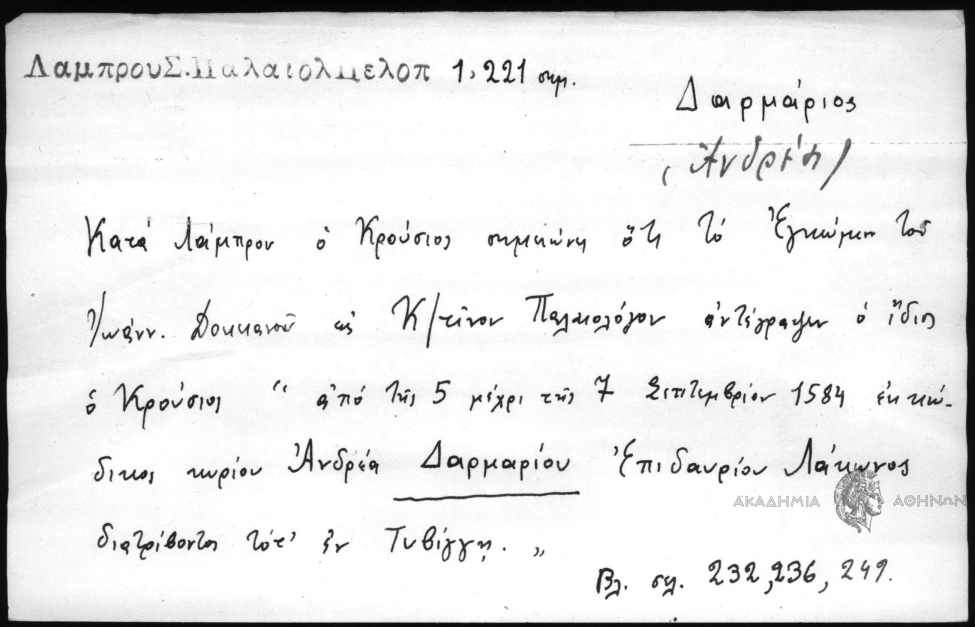 ΛαμπρουΣ.ΠαλαιολΠελοπ 1, 221 σημ.
Δαρμάριος
(Ἀνδρέας)
Κατά Λάμπρον ὁ Κρούσιος σημειώνει ὅτι τό Ἐγκώμιον τοῦ
Ἰωάνν. Δοκειανοῦ εἰς Κ/τῖνον Παλαιολόγον ἀντέγραψεν ὁ ἴδιος
ὁ Κρούσιος " ἀπό τῆς 5 μέχρι τῆς 7 Σεπτεμβρίου 1584 ἐκ κώ-
δικος κυρίου Ἀνδρέα Δαρμαρίου Ἐπιδαυρίου Λάκωνος
διατρίβοντος τότ' ἐν Τυβίγγῃ. "
Βλ. σελ. 232, 236, 249.
ΑΚΑΔΗΜΙΑ ΑΘΗΝΩΝ